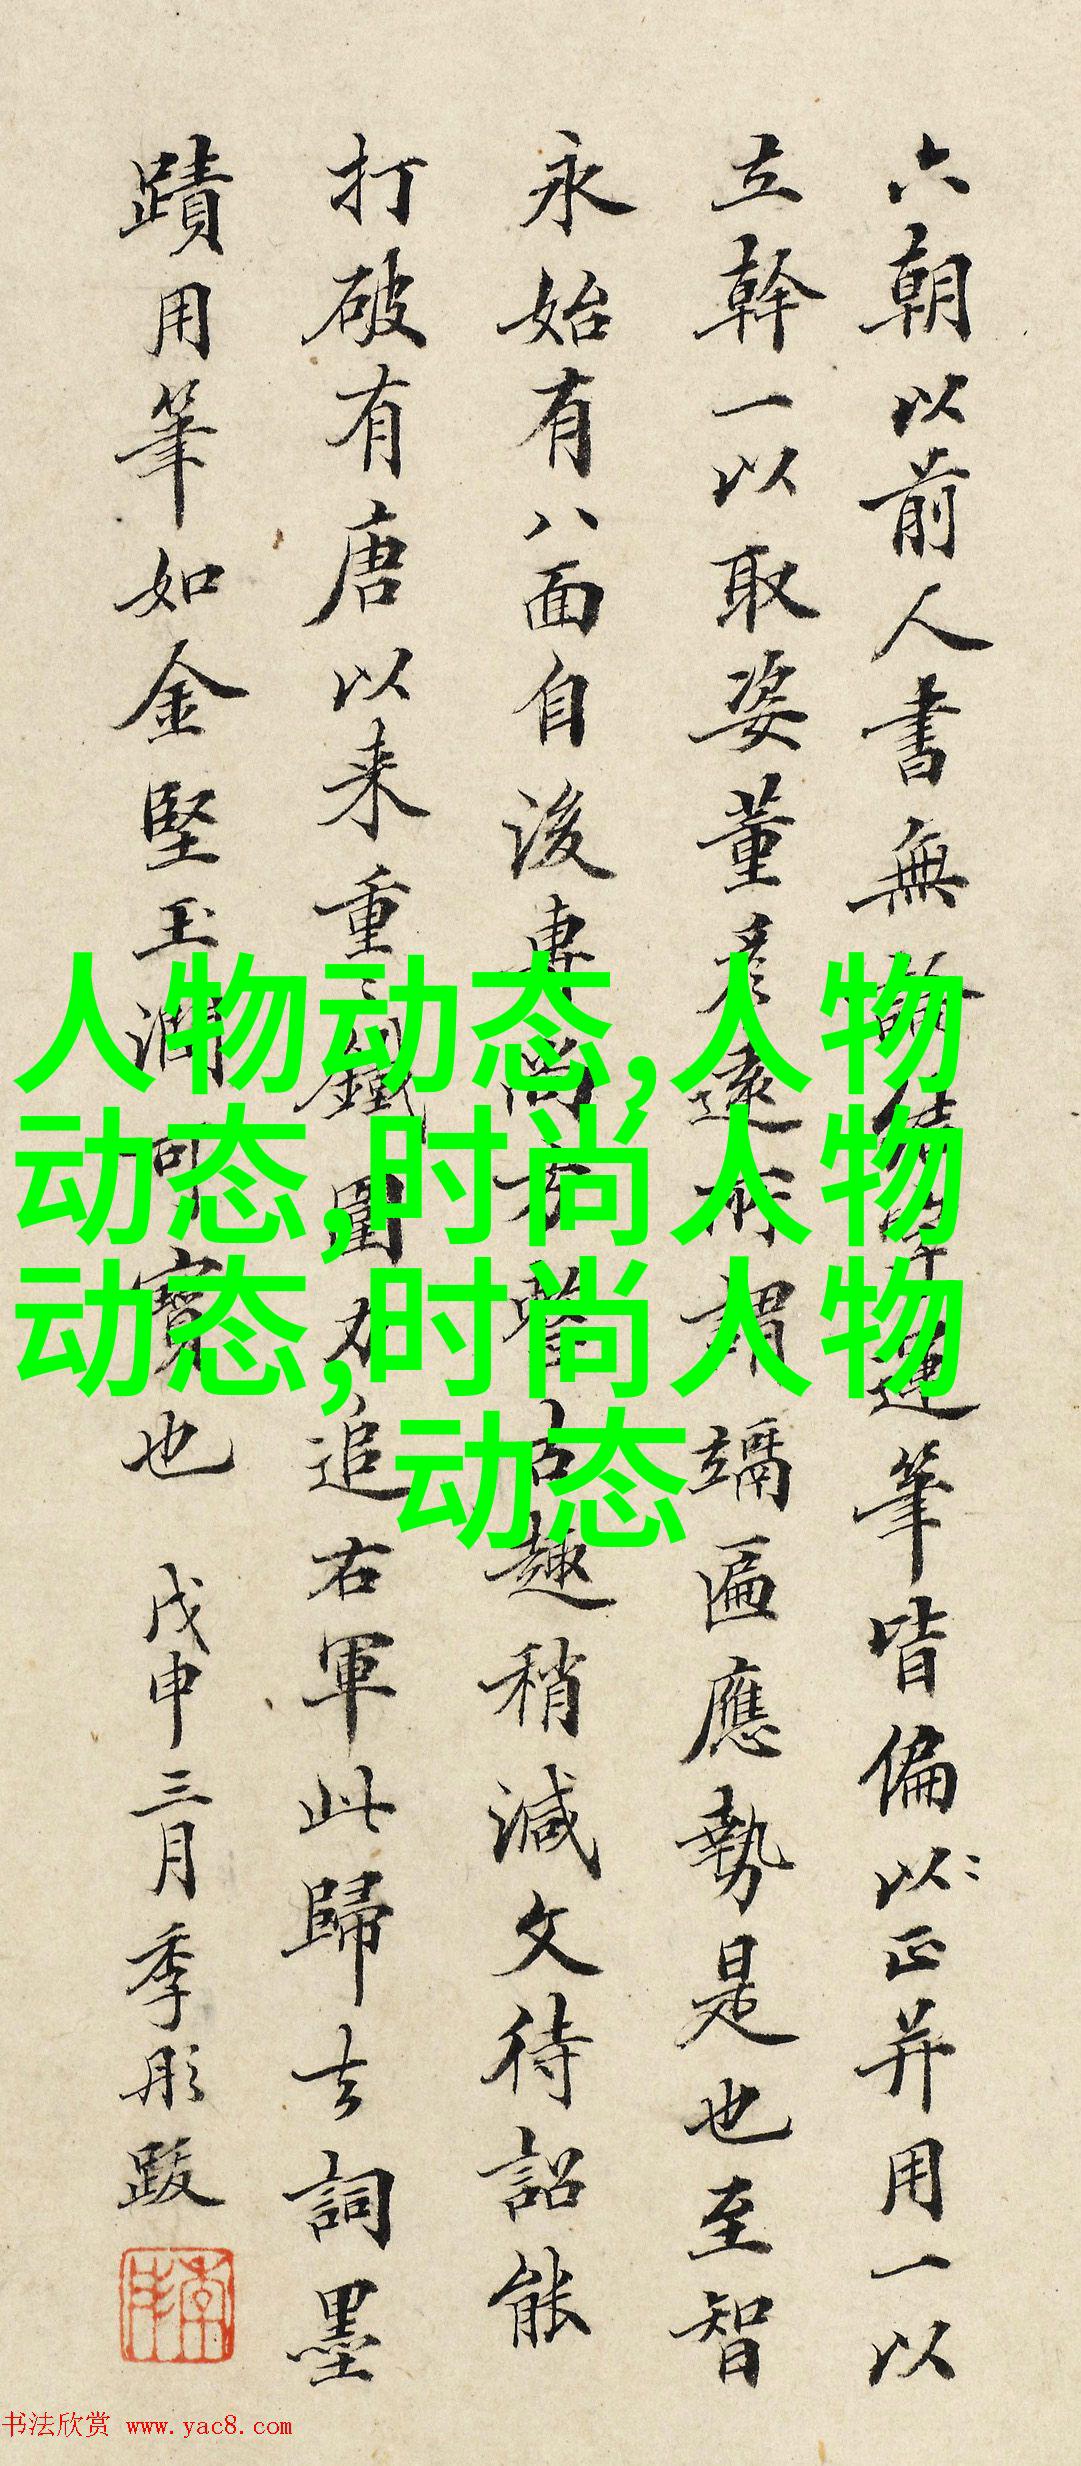 六朝以前人書無論結字運筆皆偏以正并用一以
立幹一以取姿董彥遠所謂端匾應勢是也至智
永始有八面自後專尚方整古趣稍減文待詔能
打破有唐以来重〻鐵圍力追右軍此歸去詞墨
蹟用筆如金堅玉潤可寶也 戊申三月季彤跋
人物动态,人物
动态,时尚人物
动态,时尚人物
动态
书法欣赏 www.yac8.com